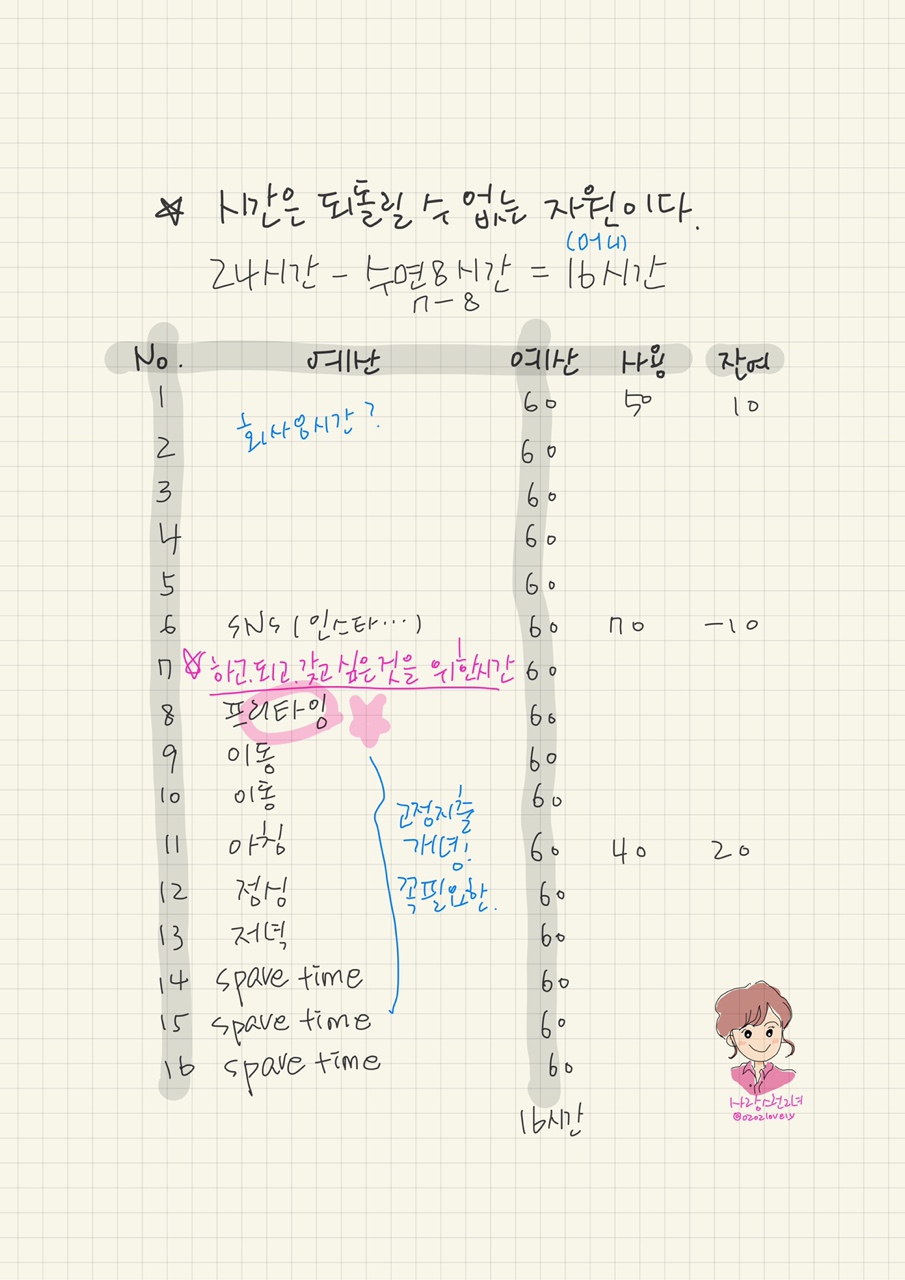 ☆ 시간은 되돌릴 수 없는 자원이다.
(머니)
24시간 - 수면8시간 = 16시간
7-8
No. 예산 예산 사용 잔여
1 60 50 10
회사용시간?
2 60
3 60
4 60
5 60
6 SNS (인스타...) 60 70 -10
7 ☆ 하고.되고.갖고싶은것을 위한시간 60
8 프리타임 60
9 이동 60
10 이동 60
고정지출
11 아침 60 40 20
개념!
12 점심 60
꼭필요한.
13 저녁 60
14 spare time 60
15 spare time 60
16 spare time 60
16시간
@0202lovely